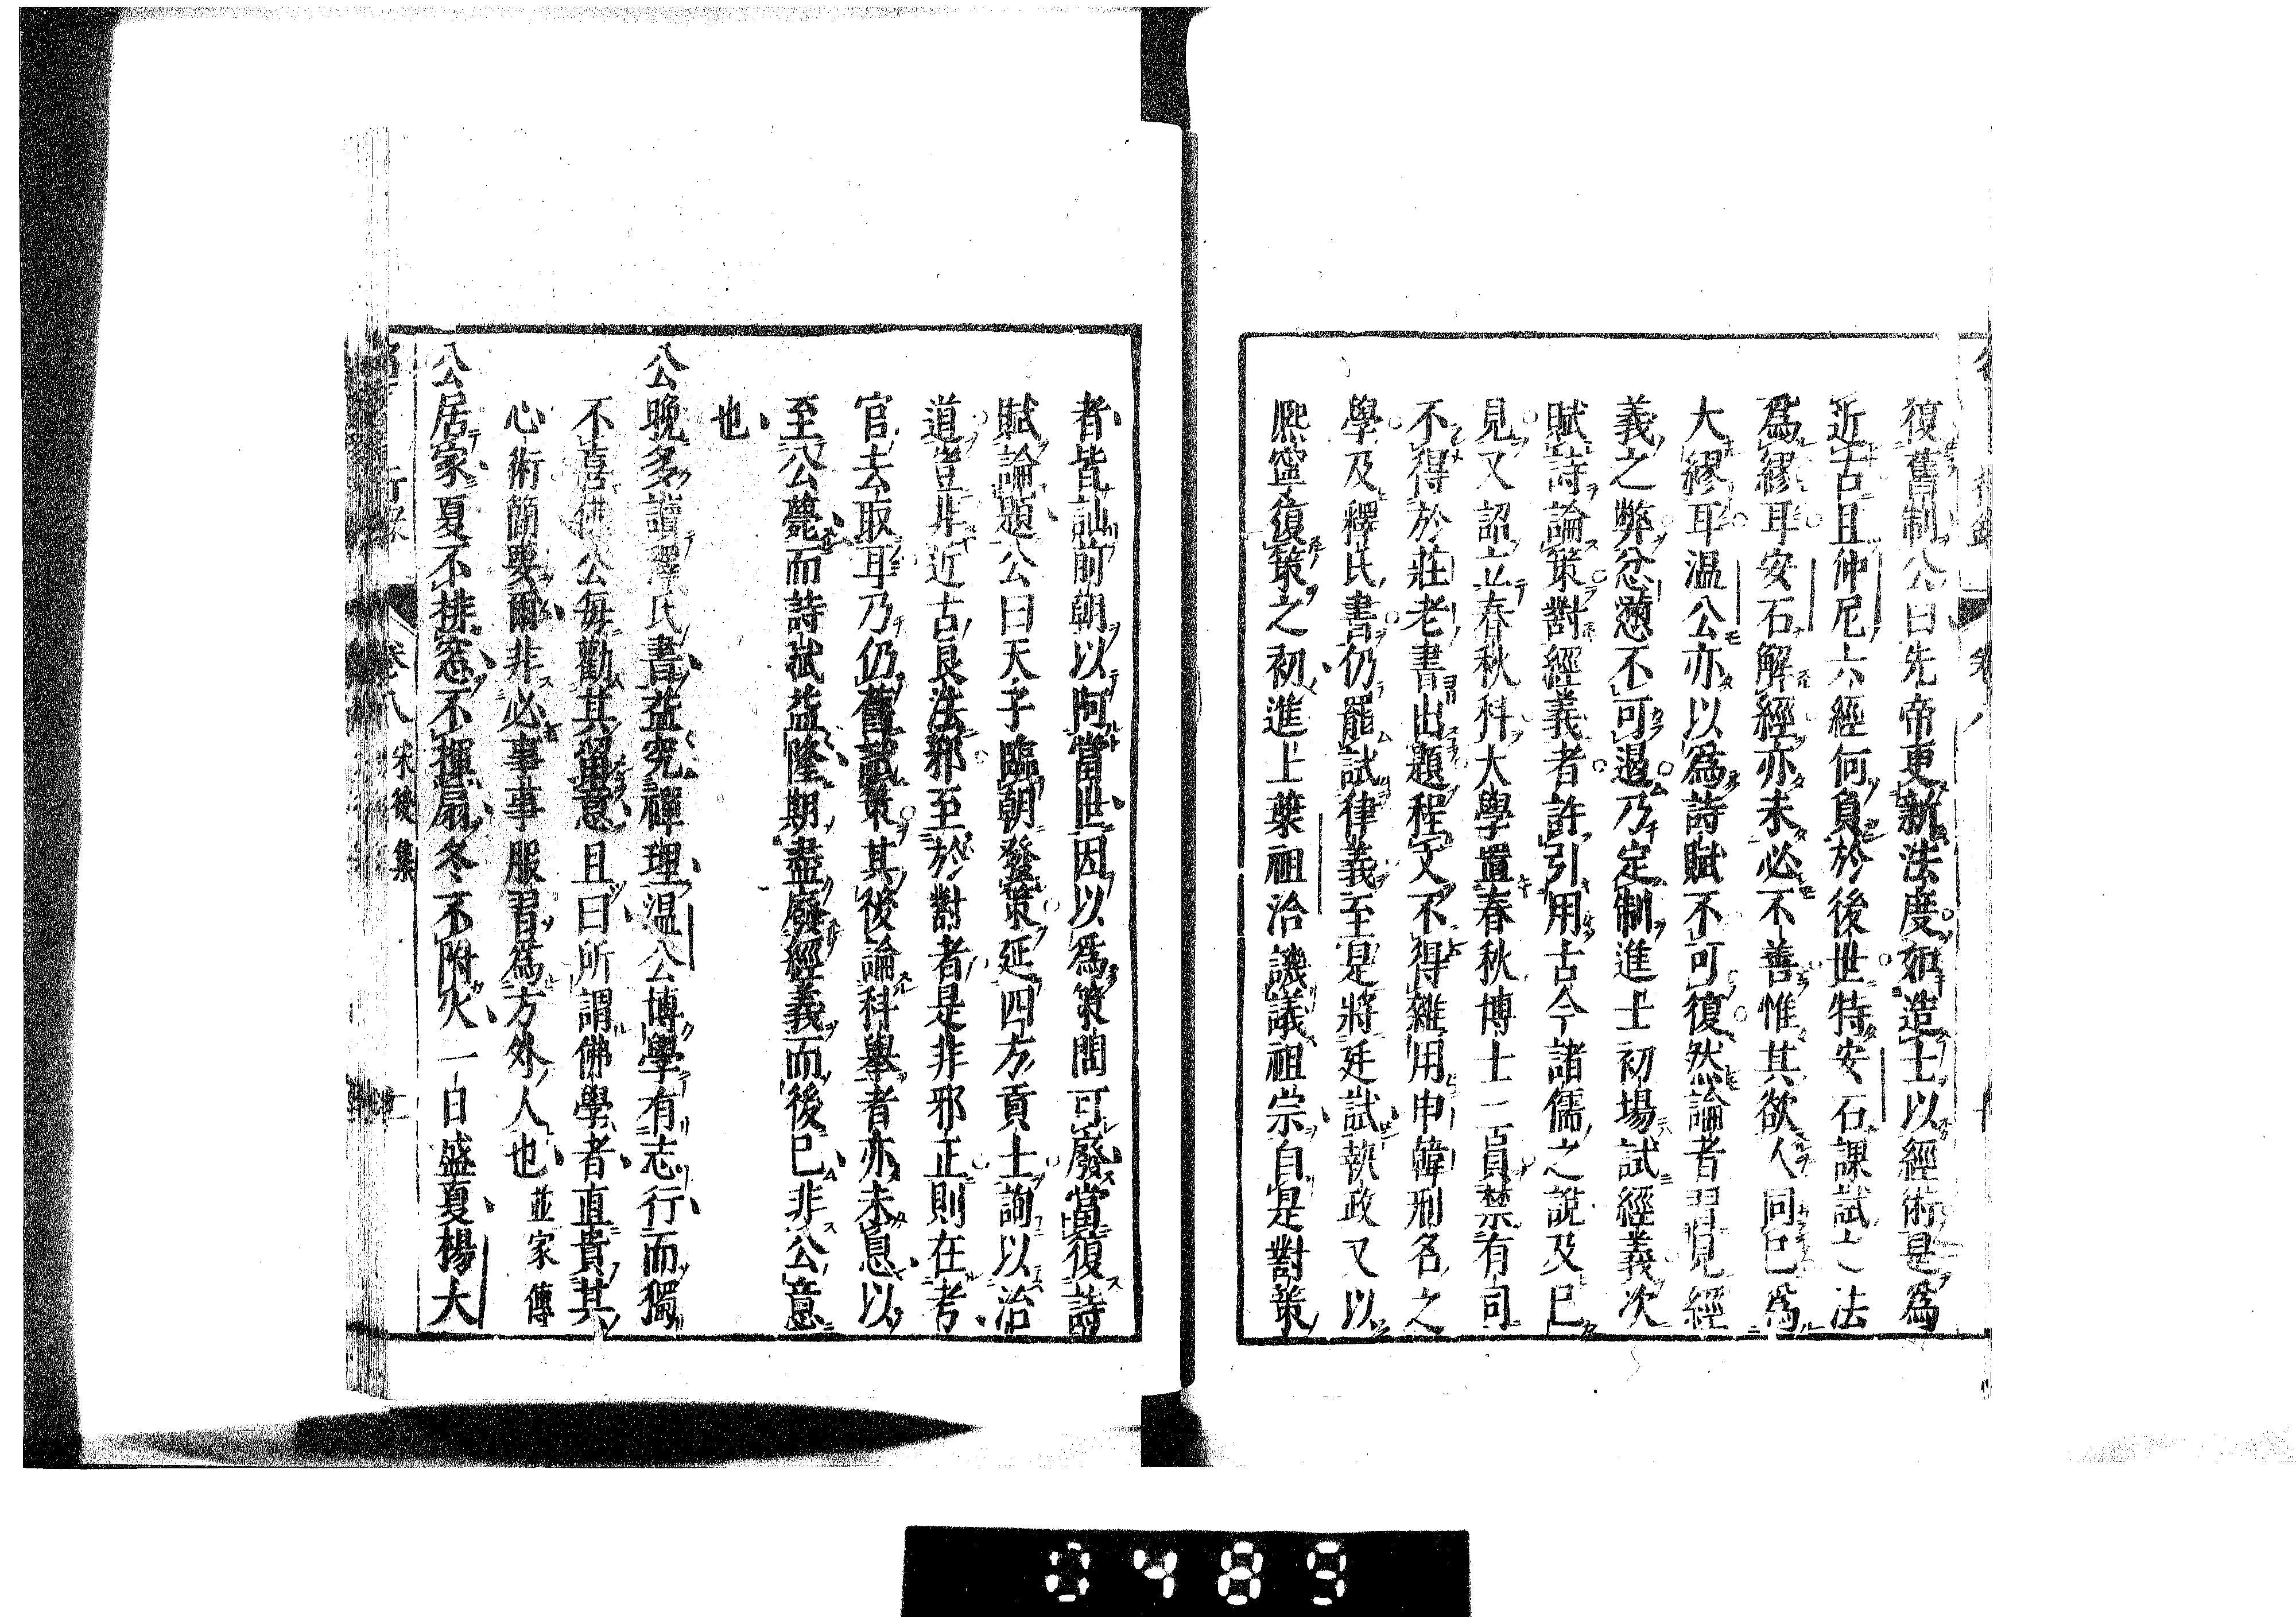 復舊制公曰先帝更新法度如造士以經術是爲
近古且仲尼六經何負於後世特安石課試之法
爲繆耳安石解經亦未必不善惟其欲人同已爲
大繆耳温公亦以爲詩賦不可復然論者習見經
義之弊忿懣不可遏乃定制進士初場試經義次
賦詩論策對經義者許引用古今諸儒之說及已
見又詔立春秋科大學置春秋博士二員禁有司
不得於莊老書出題程文不得雜用申韓刑名之
學及釋氏書仍罷試律義至是將廷試執政又以
熈寧復策之初進士葉祖洽譏議祖宗自是對策
者皆訕前朝以阿當世因以爲策問可廢當復詩
賦論題公曰天子臨朝發策延四方貢士詢以治
道豈非近古良法邪至於對者是非邪正則在考
官去取耳乃仍舊試策其後論科舉者亦未息以
至公薨而詩賦益隆期盡廢經義而後已非公意
也
公晚多讀釋氏書益究禪理温公博學有志行而獨
不喜佛公每勸其留意且曰所謂佛學者直貴其
心術簡要爾非必事事服習爲方外人也並家傳
公居家夏不排窓不揮扇冬不附火一日盛夏楊大
卷八 宋後集
0489